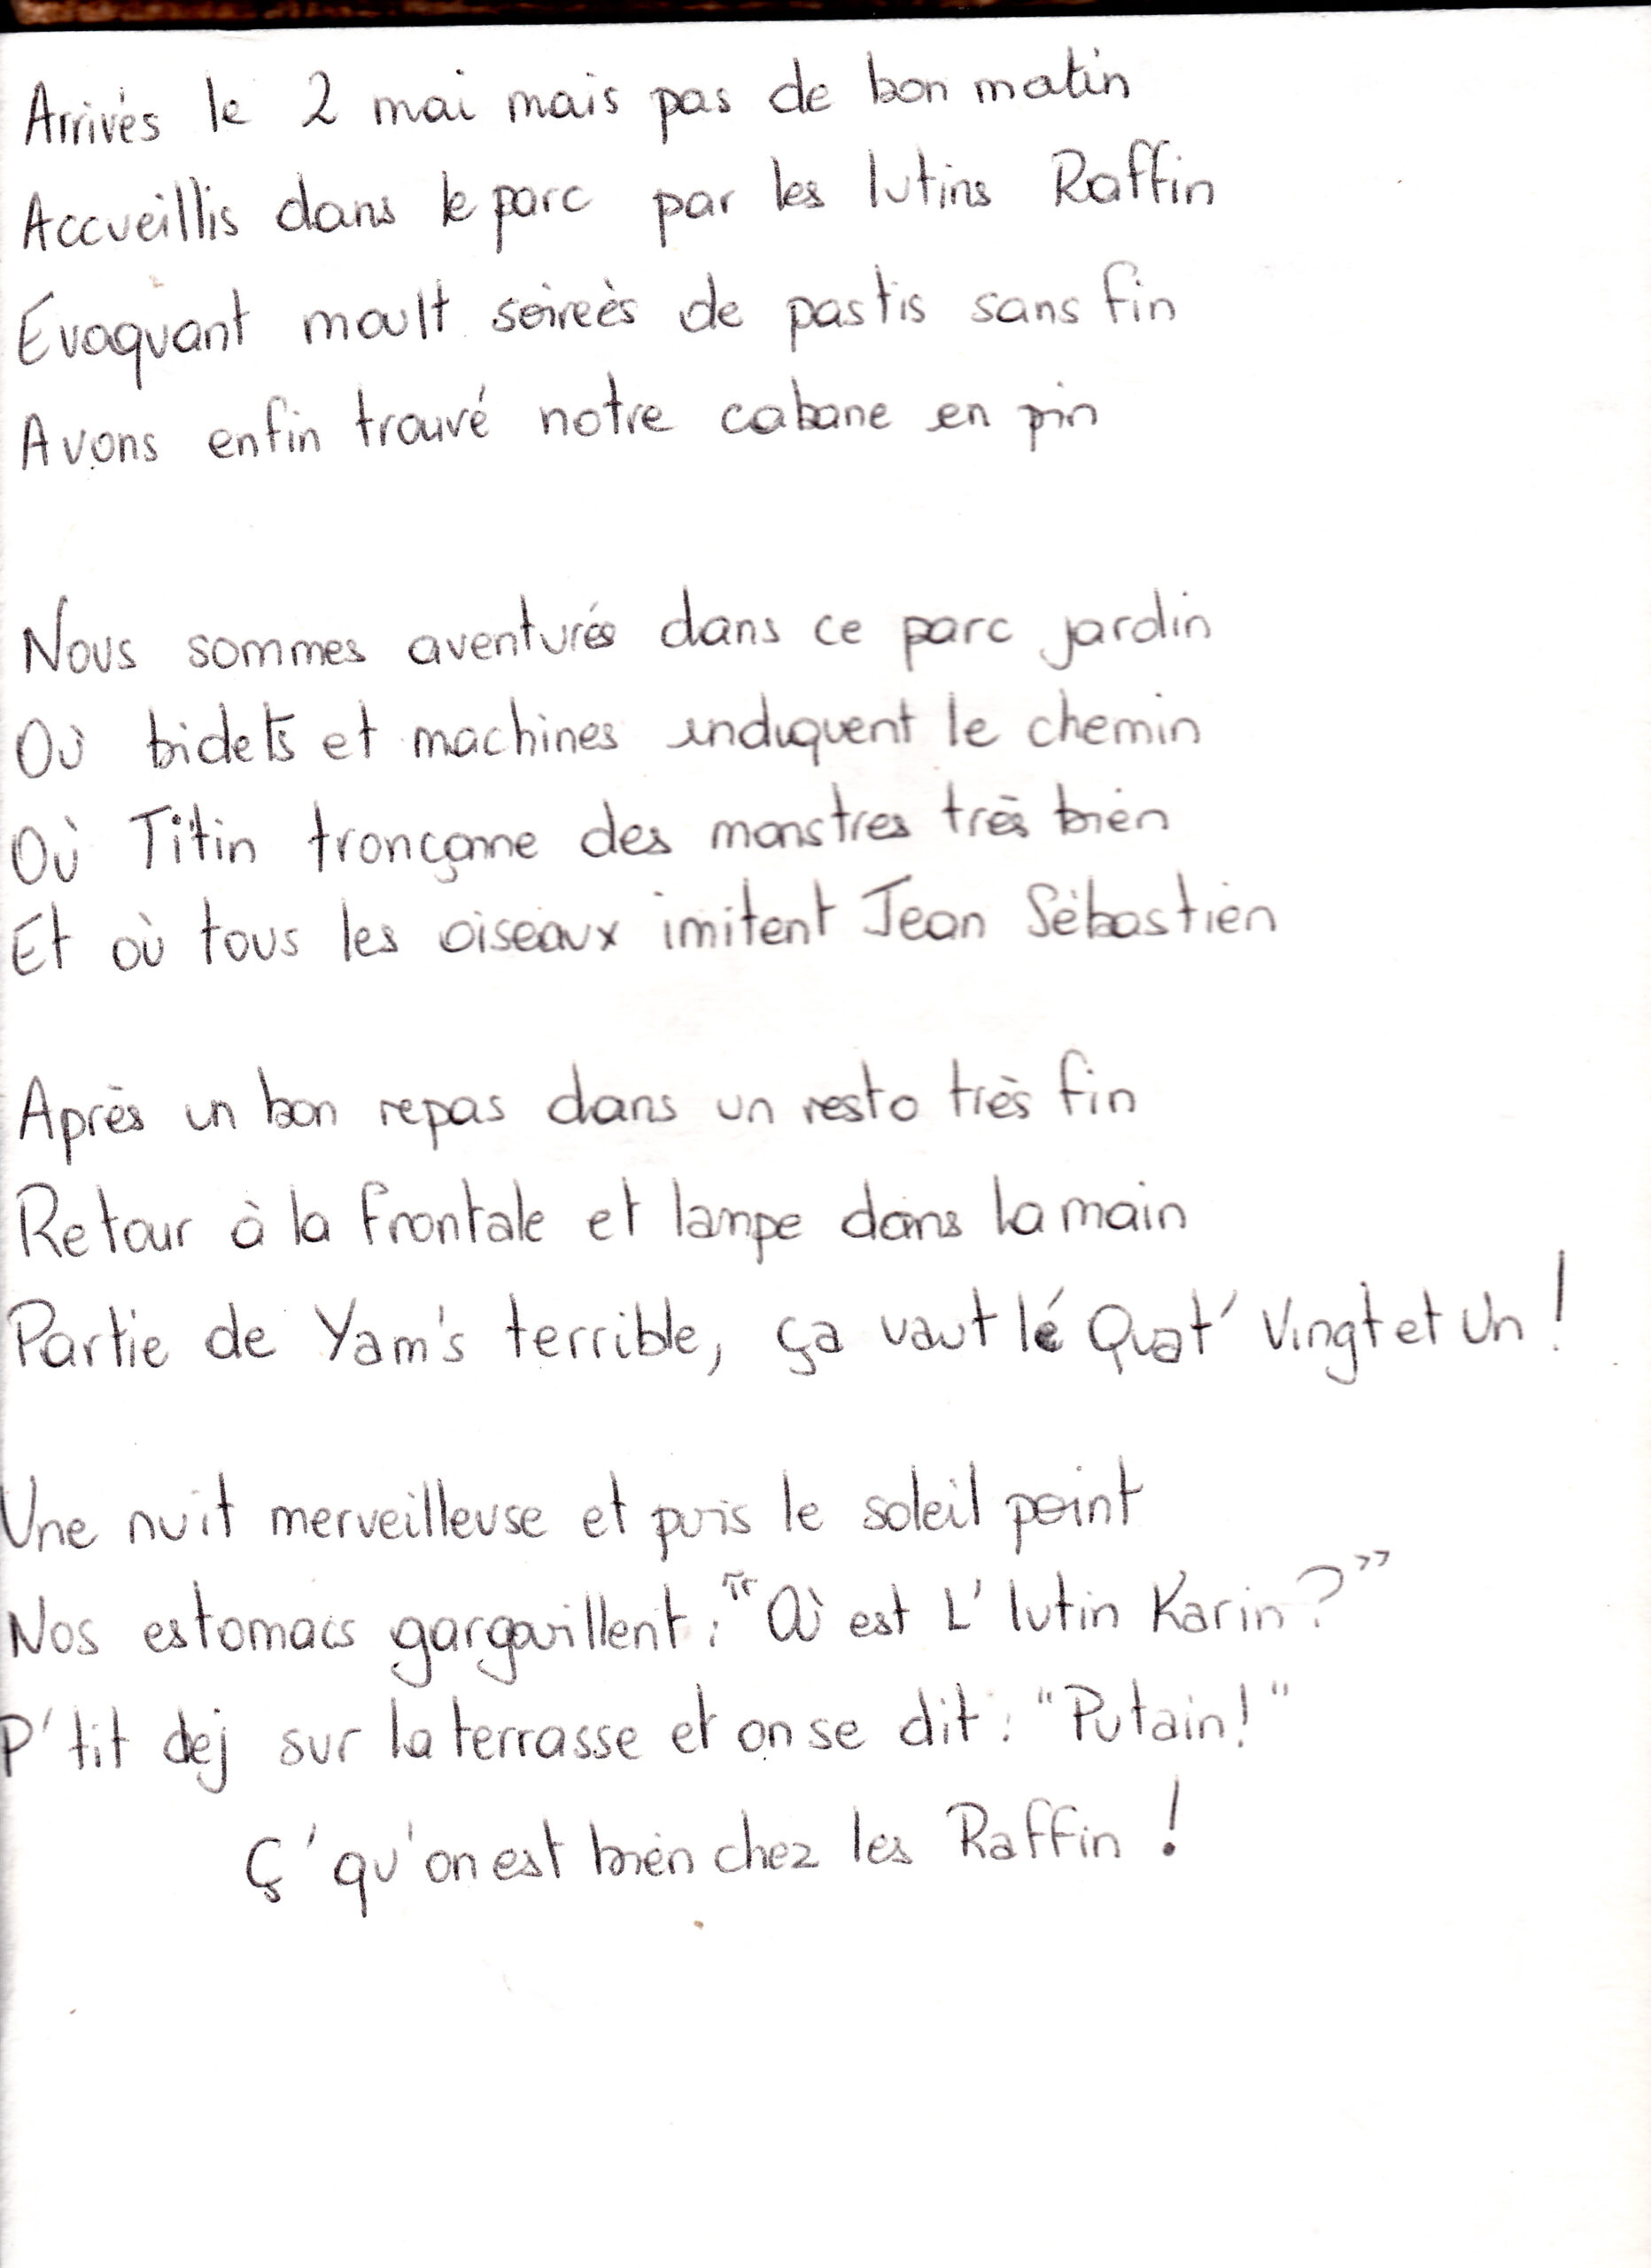 Arrivés le 2 mai mais pas de bon matin
Accueillis dans le parc par les lutins Raffin
Evoquant moult soirées de pastis sans fin
Avons enfin trouvé notre cabane en pin
Nous sommes aventurés dans ce parc jardin
Où bidets et machines indiquent le chemin
Où Titin tronçonne des monstres très bien
Et où tous les oiseaux imitent Jean Sébastien
Après un bon repas dans un resto très fin
Retour à la frontale et lampe dans la main
Partie de Yam's terrible, ça vaut lé Quat' Vingt et Un !
Une nuit merveilleuse et puis le soleil point
Nos estomacs gargouillent : "Où est L' lutin Karin ?"
P'tit dej sur la terrasse et on se dit : "Putain !"
Ç' qu'on est bien chez les Raffin !